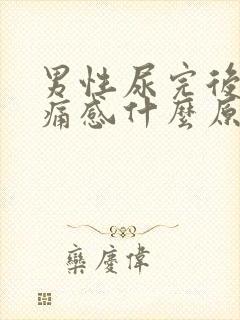 男性尿完後
痛感什麼原
欒慶偉